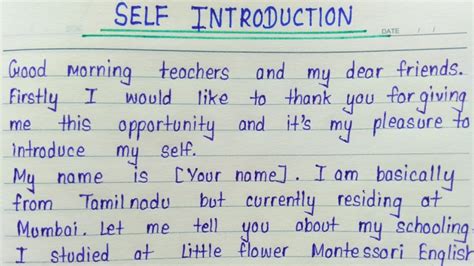 SELF INTRODUCTION
DATE / /
Good morning teachers and my dear friends.
Firstly I would like to thank you for giving
me this opportunity and it's my pleasure to
introduce my self.
My name is [Your name]. I am basically
from Tamilnadu but currently residing at
Mumbai. Let me tell you about my schooling.
I studied at Little flower Montessori English